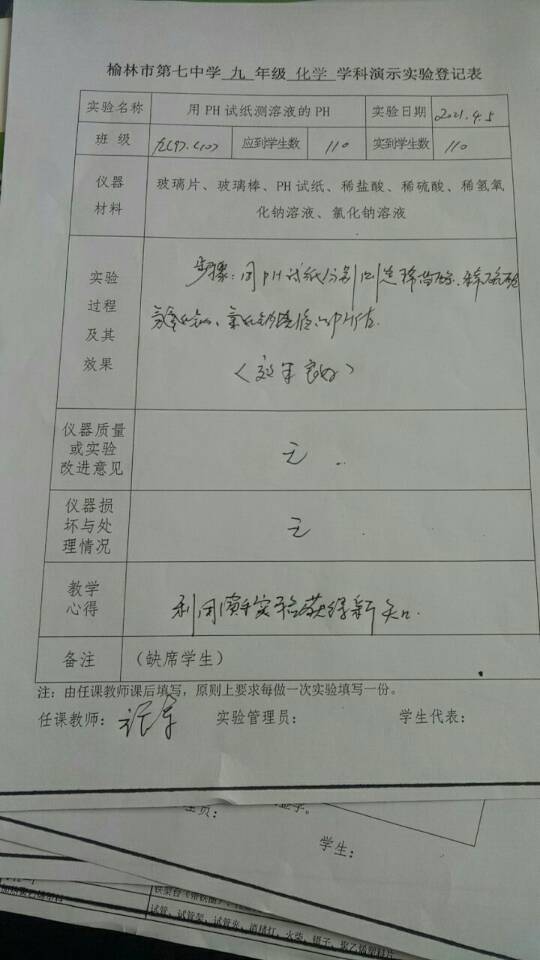 榆林市第七中学 九 年级 化学 学科演示实验登记表
实验名称 用PH试纸测溶液的PH 实验日期 2021.4.5
班 级 应到学生数 110 实到学生数 110
仪器
材料
玻璃片、玻璃棒、PH试纸、稀盐酸、稀硫酸、稀氢氧
化钠溶液、氯化钠溶液
实验
过程
及其
效果
步骤:用PH试纸分别测定稀盐酸、稀硫酸
氢氧化钠、氯化钠溶液的PH值.
(效果良好)
仪器质量
或实验
改进意见
无.
仪器损
坏与处
理情况
无
教学
心得
利用演示实验获得新知.
备注 (缺席学生)
注:由任课教师课后填写,原则上要求每做一次实验填写一份。
任课教师: 实验管理员: 学生代表:
学生:
试管、试管架、试管夹、酒精灯、火柴、镊子、